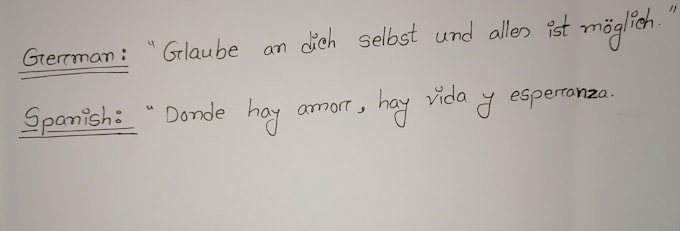 German: "Glaube an dich selbst und alles ist möglich."
Spanish: "Donde hay amor, hay vida y esperanza.